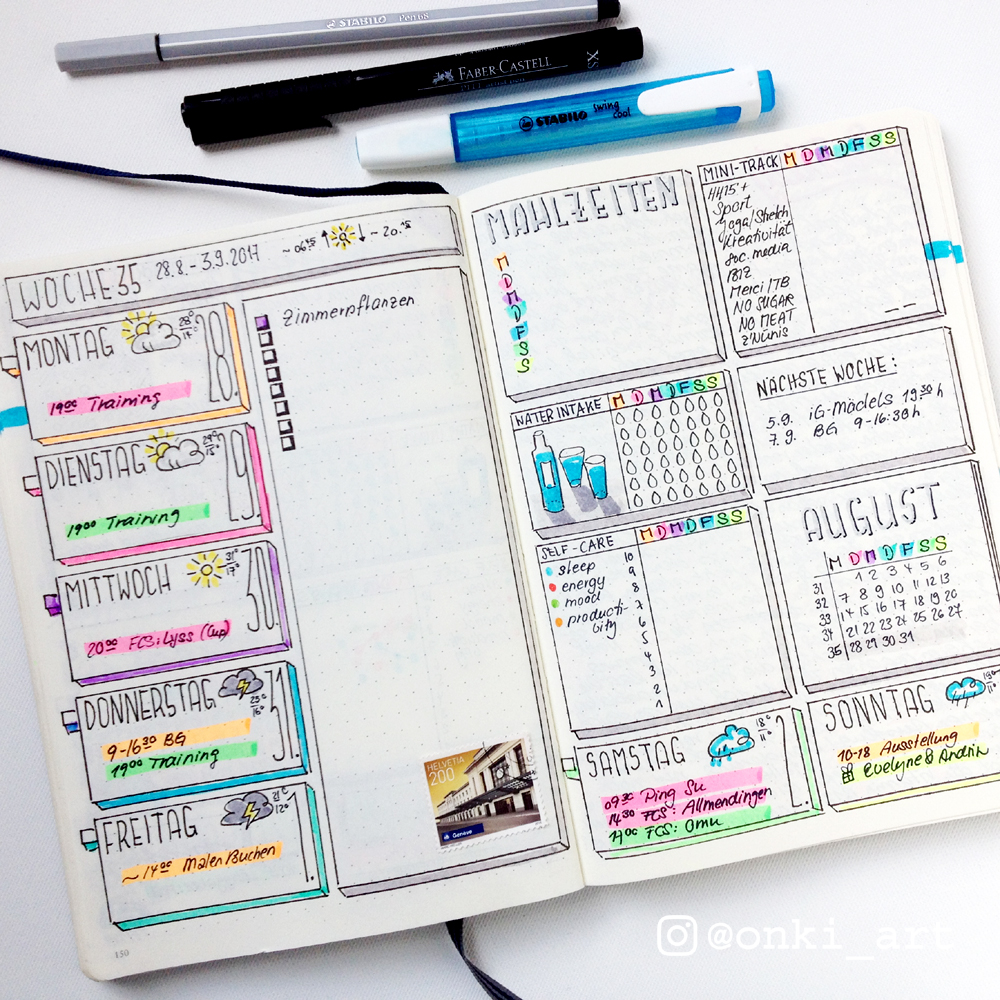 STABILO Pen 68
FABER CASTELL
XS
STABILO swing cool
WOCHE 35
28.8. - 3.9.2017
MONTAG
28.
19⁰⁰ Training
DIENSTAG
29.
19⁰⁰ Training
MITTWOCH
31°
17°
30.
20⁰⁰ FCS:Lyss (Cup)
DONNERSTAG
31.
9-16³⁰ BG
19⁰⁰ Training
FREITAG
1.
~14⁰⁰ Malen Buchen
150
Zimmerpflanzen
HELVETIA
200
Genève
MAHLZEITEN
M
D
M
D
F
S
S
MINI-TRACK M D M D F S S
Sport
Yoga/Stretch
Kreativität
soc. media
Merci/TB
NO SUGAR
NO MEAT
z'Nünis
WATER INTAKE M D M D F S S
NÄCHSTE WOCHE:
5.9. iG-Mädels 19³⁰h
7.9. BG 9-16:30h
SELF-CARE M D M D F S S
sleep
energy
mood
producti-
vity
10
9
8
7
6
5
4
3
2
1
AUGUST
M D M D F S S
31 1 2 3 4 5 6
32 7 8 9 10 11 12 13
33 14 15 16 17 18 19 20
34 21 22 23 24 25 26 27
35 28 29 30 31
SAMSTAG
18°
11°
2.
09³⁰ Ping Su
14³⁰ FCS: Allmendingen
FCS: Omu
SONNTAG
10-18 Ausstellung
Evelyne & Andrin
@onki_art